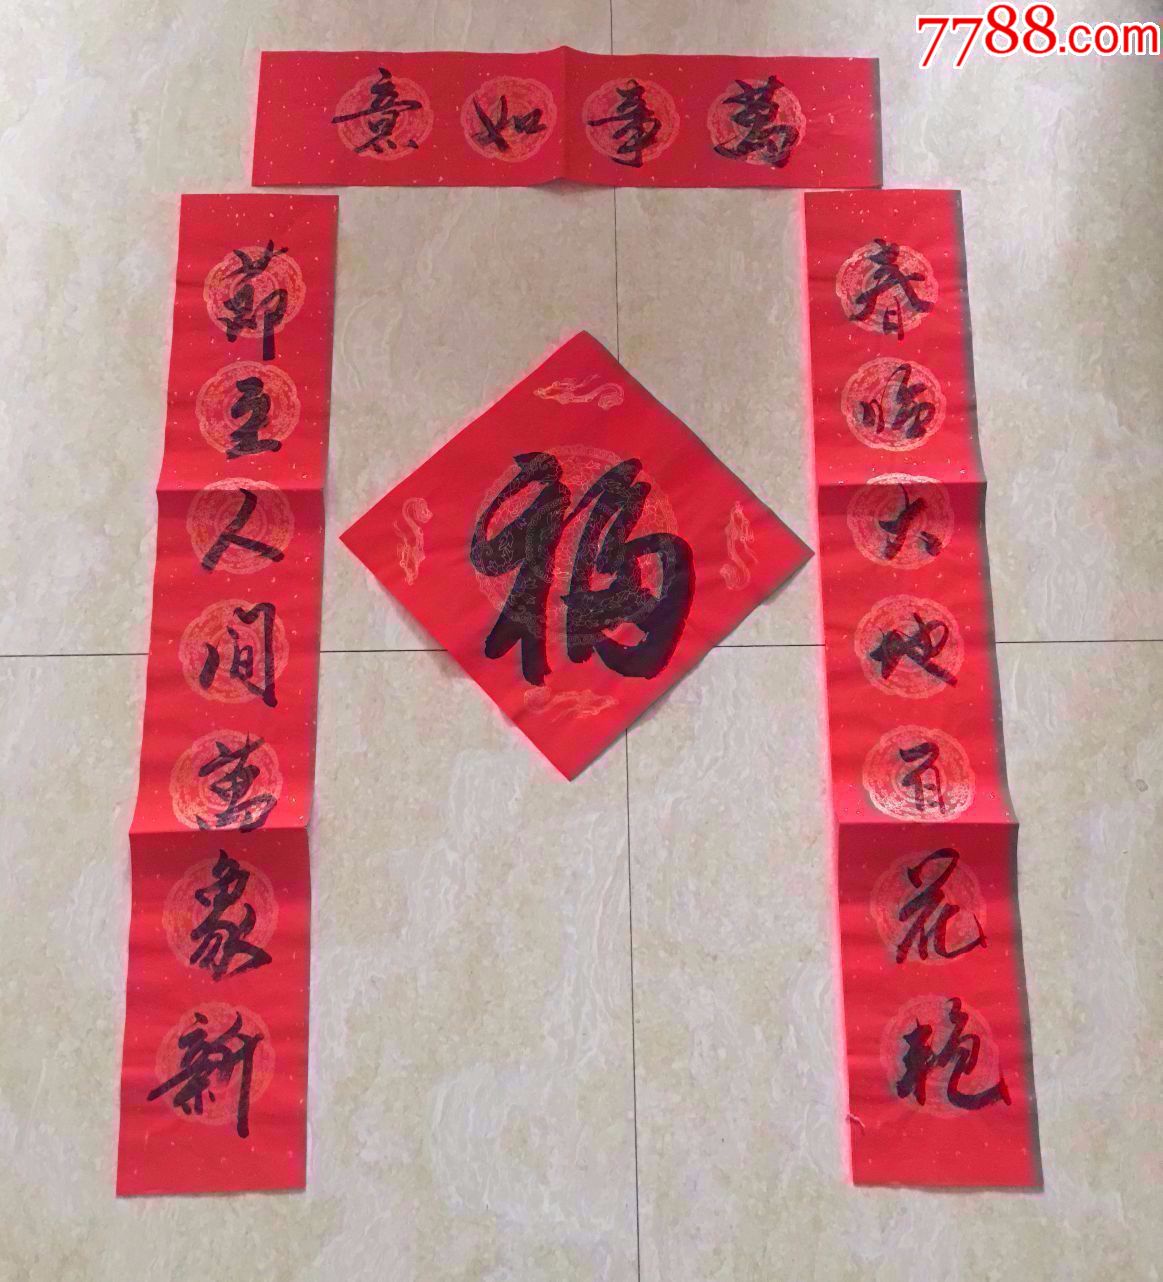 7788.com
萬事如意
春臨大地百花艳
節至人间萬象新
福